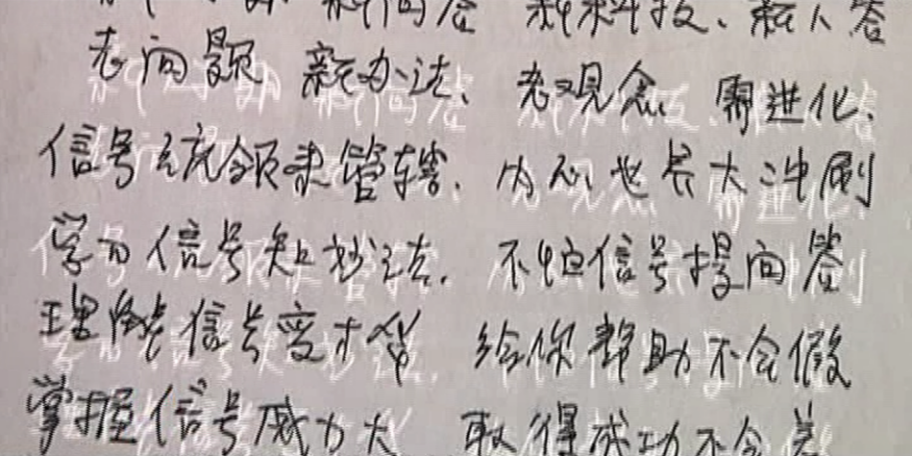 新科技、新人答
老问题 新办法、 老观念 需进化、
信号统领来管辖、 内心也长大冲刷
学习信号知妙法、 不怕信号提问答
理解信号变才华 给你帮助不会假
掌握信号威力大 取得成功不会差